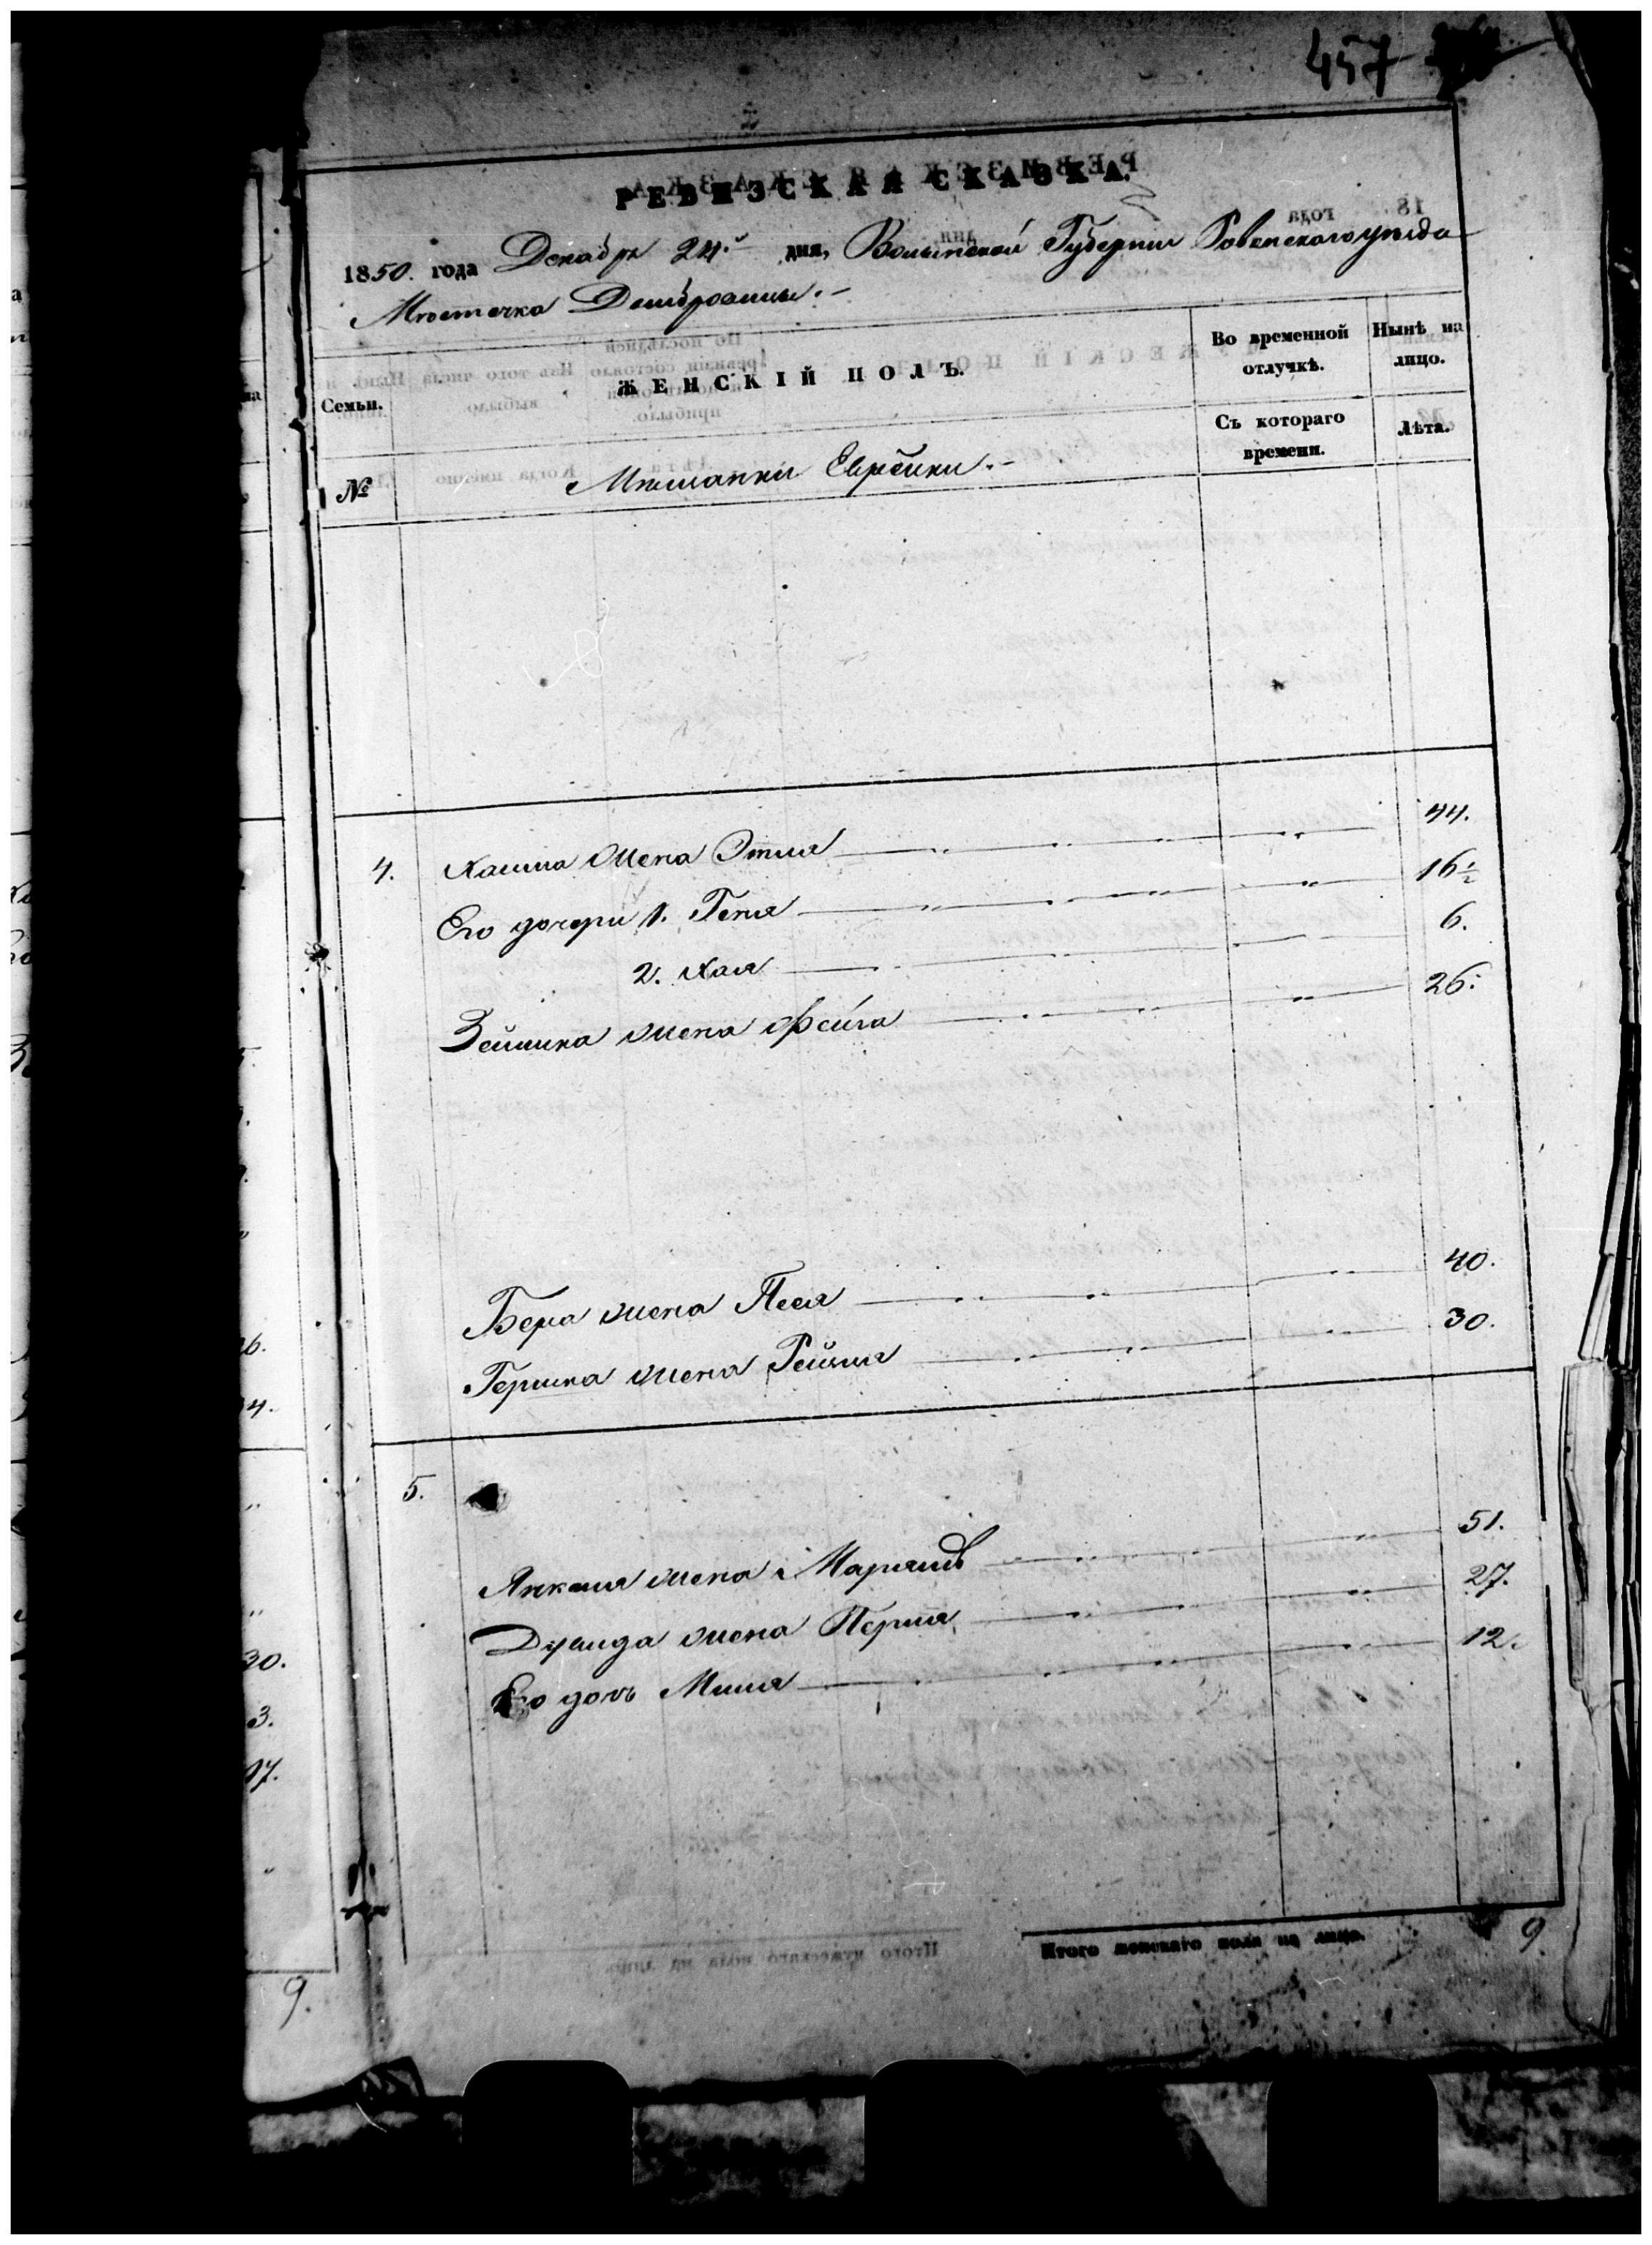 457
РЕВИЗСКАЯ СКАЗКА.
1850. года Декабря 24. дня, Волынской Губернии Ровенского уѣзда
Мѣстечка Домбровицы.
Семьи.
ЖЕНСКІЙ ПОЛЪ.
Во временной отлучкѣ.
Нынѣ на лицо.
Съ котораго времени.
Лѣта.
№
Мѣщанки Еврейки.
4. Хаима жена Этля 44.
Его дочери 1. Геня 16 1/2
2. Хая 6.
Зейлика жена Фейга 26.
Бера жена Песя 40.
Гершка жена Рейзля 30.
5.
Янкеля жена Маріямъ 51.
жена Перля 27.
Его дочь 12.
Итого женскаго пола на лицо. 9
9.